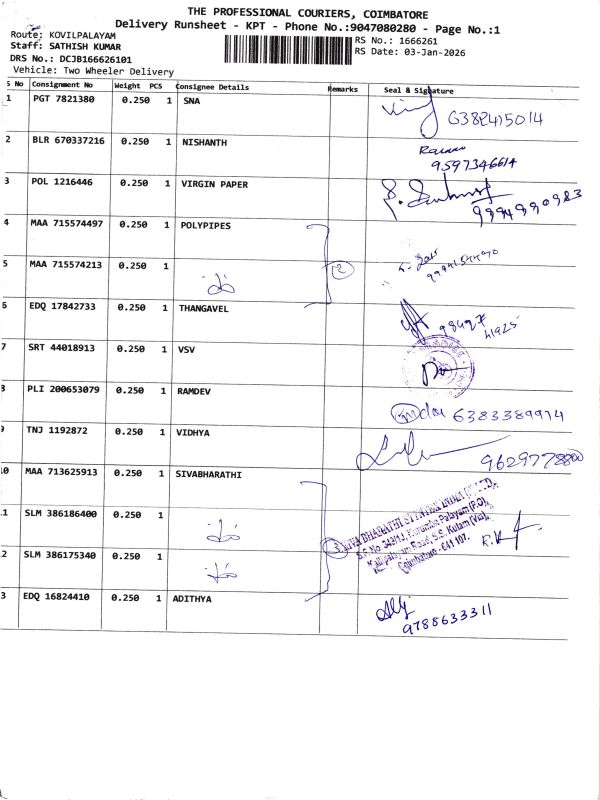 THE PROFESSIONAL COURIERS, COIMBATORE
Delivery Runsheet - KPT - Phone No.:9047080280 - Page No.:1
Route: KOVILPALAYAM
Staff: SATHISH KUMAR
DRS No.: DCJB166626101
Vehicle: Two Wheeler Delivery
RS No.: 1666261
RS Date: 03-Jan-2026
S No Consignment No Weight PCS Consignee Details Remarks Seal & Signature
1 PGT 7821380 0.250 1 SNA 6382415014
2 BLR 670337216 0.250 1 NISHANTH 9597346614
3 POL 1216446 0.250 1 VIRGIN PAPER 9994990983
4 MAA 715574497 0.250 1 POLYPIPES
5 MAA 715574213 0.250 1 2
6 EDQ 17842733 0.250 1 THANGAVEL 98427
41925
7 SRT 44018913 0.250 1 VSV
8 PLI 200653079 0.250 1 RAMDEV 6383389914
9 TNJ 1192872 0.250 1 VIDHYA 9629772800
10 MAA 713625913 0.250 1 SIVABHARATHI
11 SLM 386186400 0.250 1
12 SLM 386175340 0.250 1 3
Coimbatore - 641 107.
13 EDQ 16824410 0.250 1 ADITHYA
9788633311